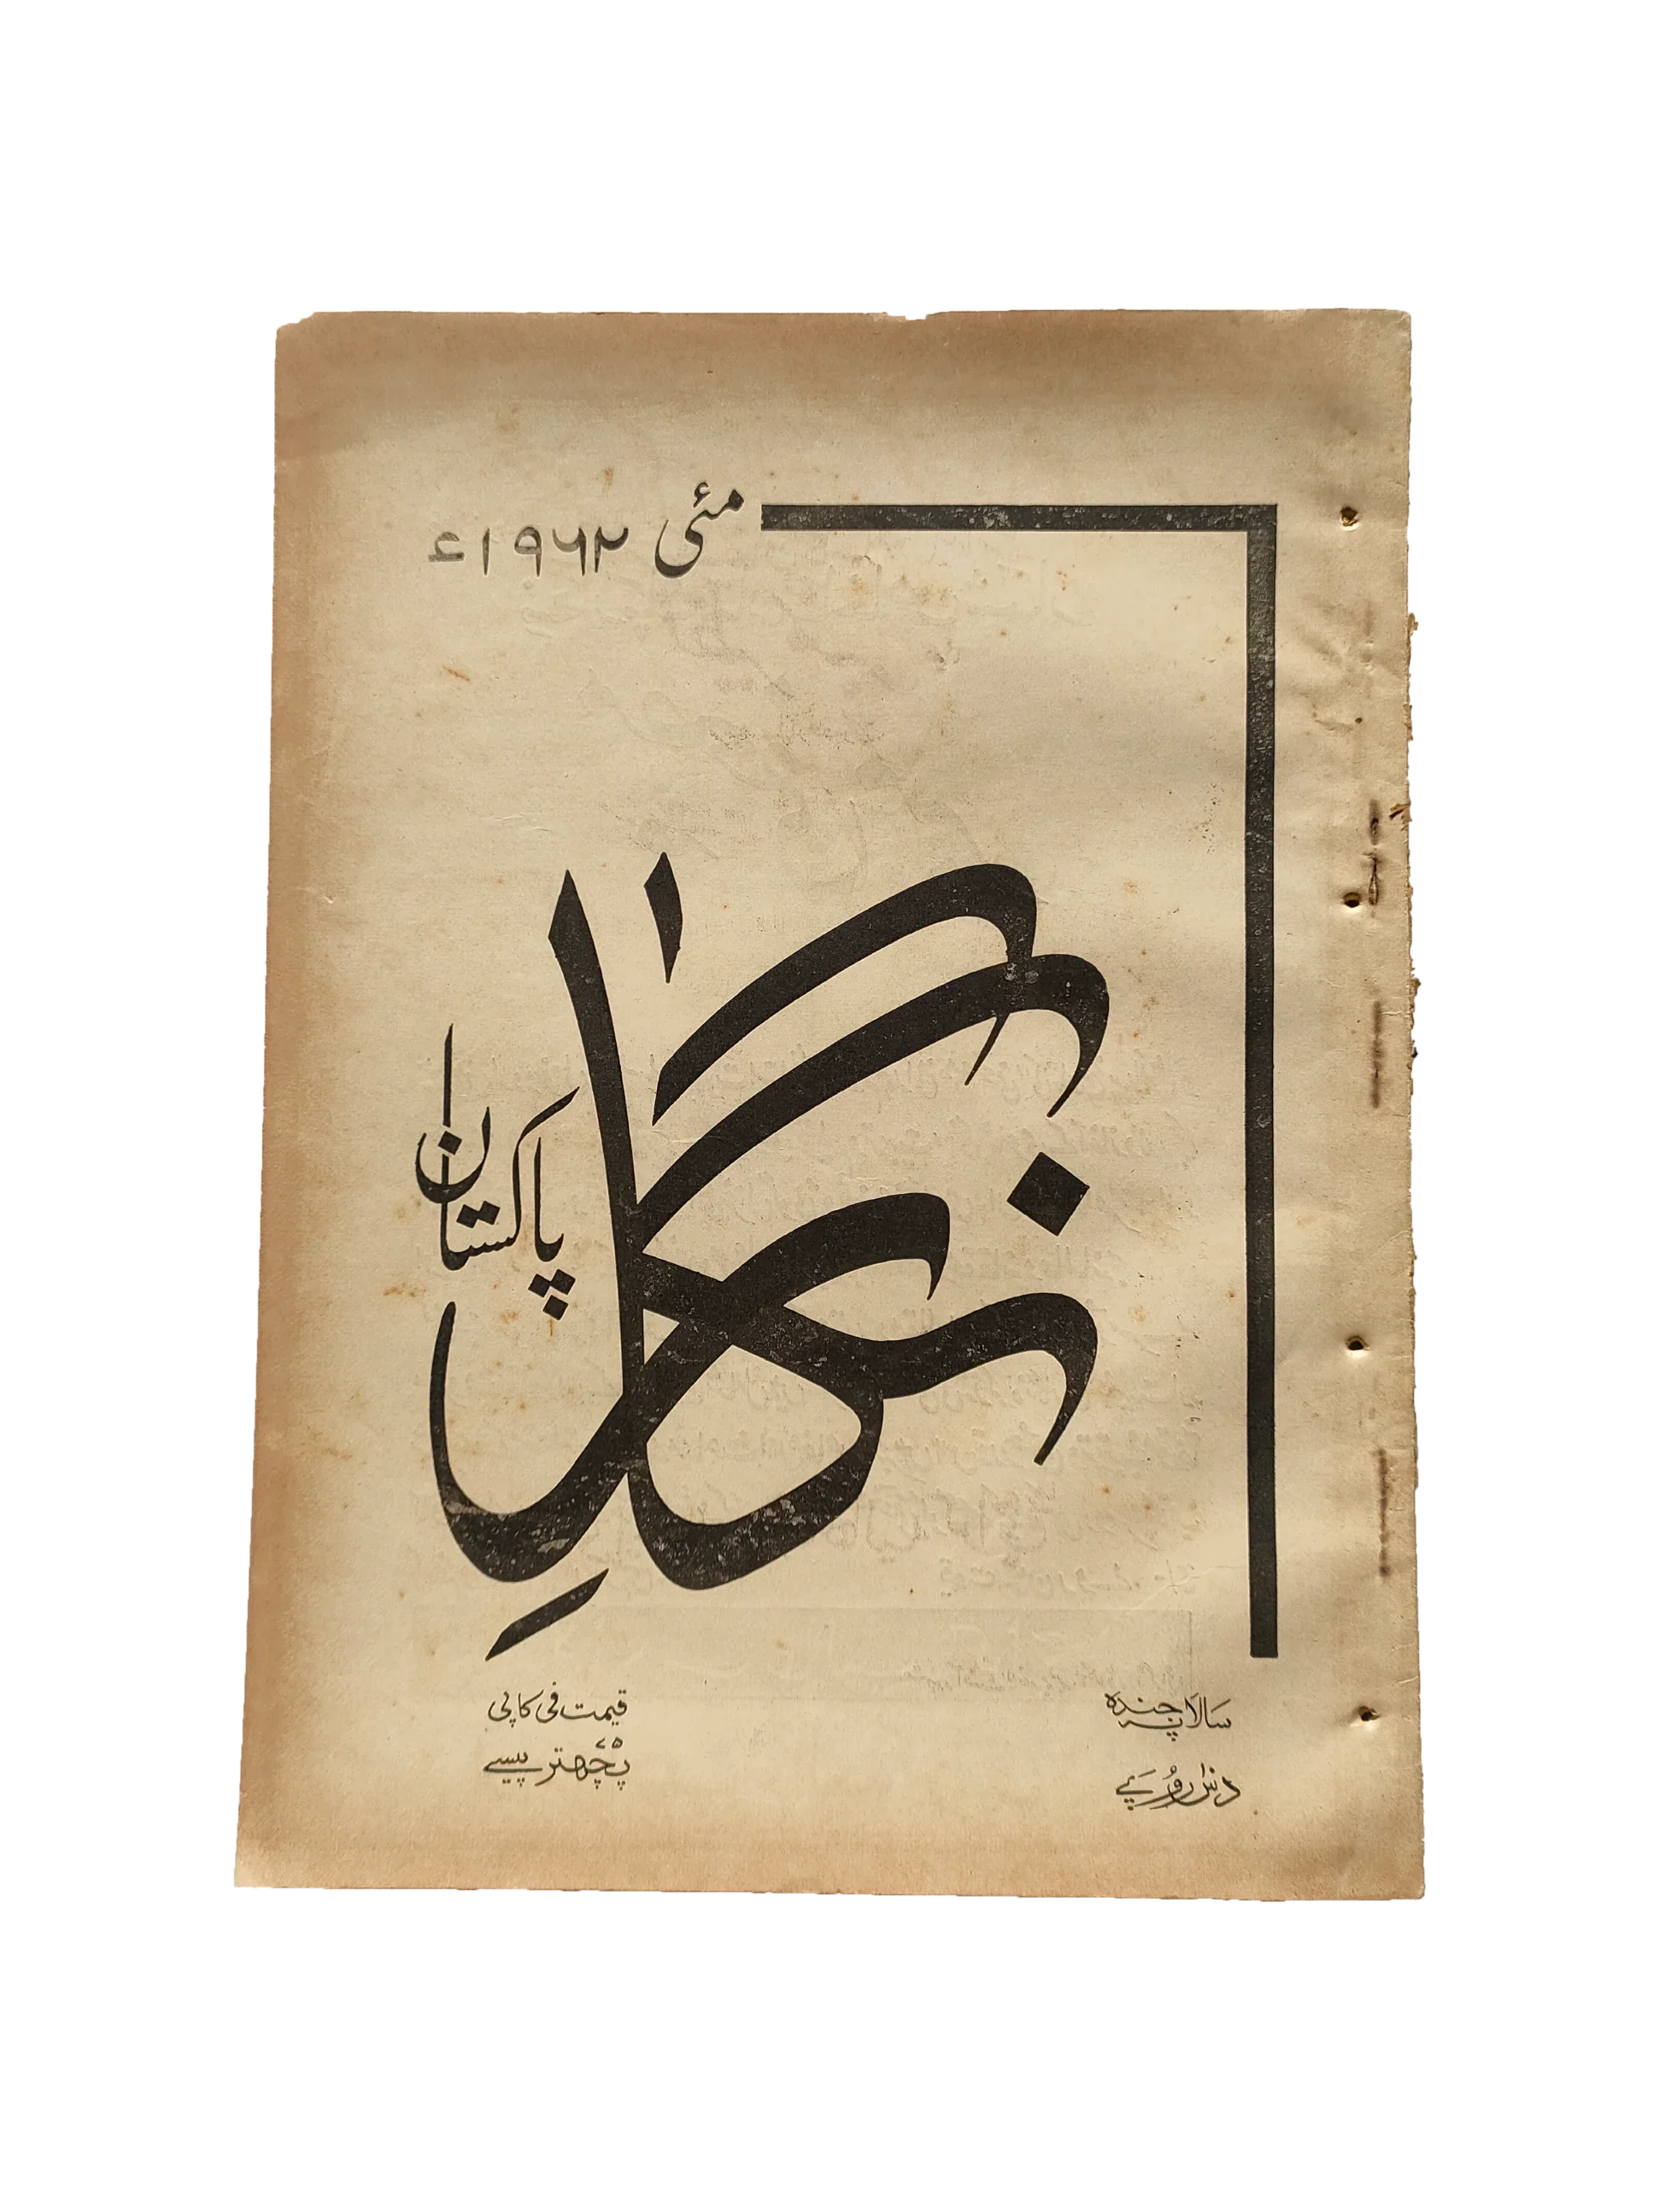 مئی ۱۹۶۲ء
نگار
پاکستان
سالانہ چندہ
دس روپے
قیمت فی کاپی
۷۵
پچھتر پیسے